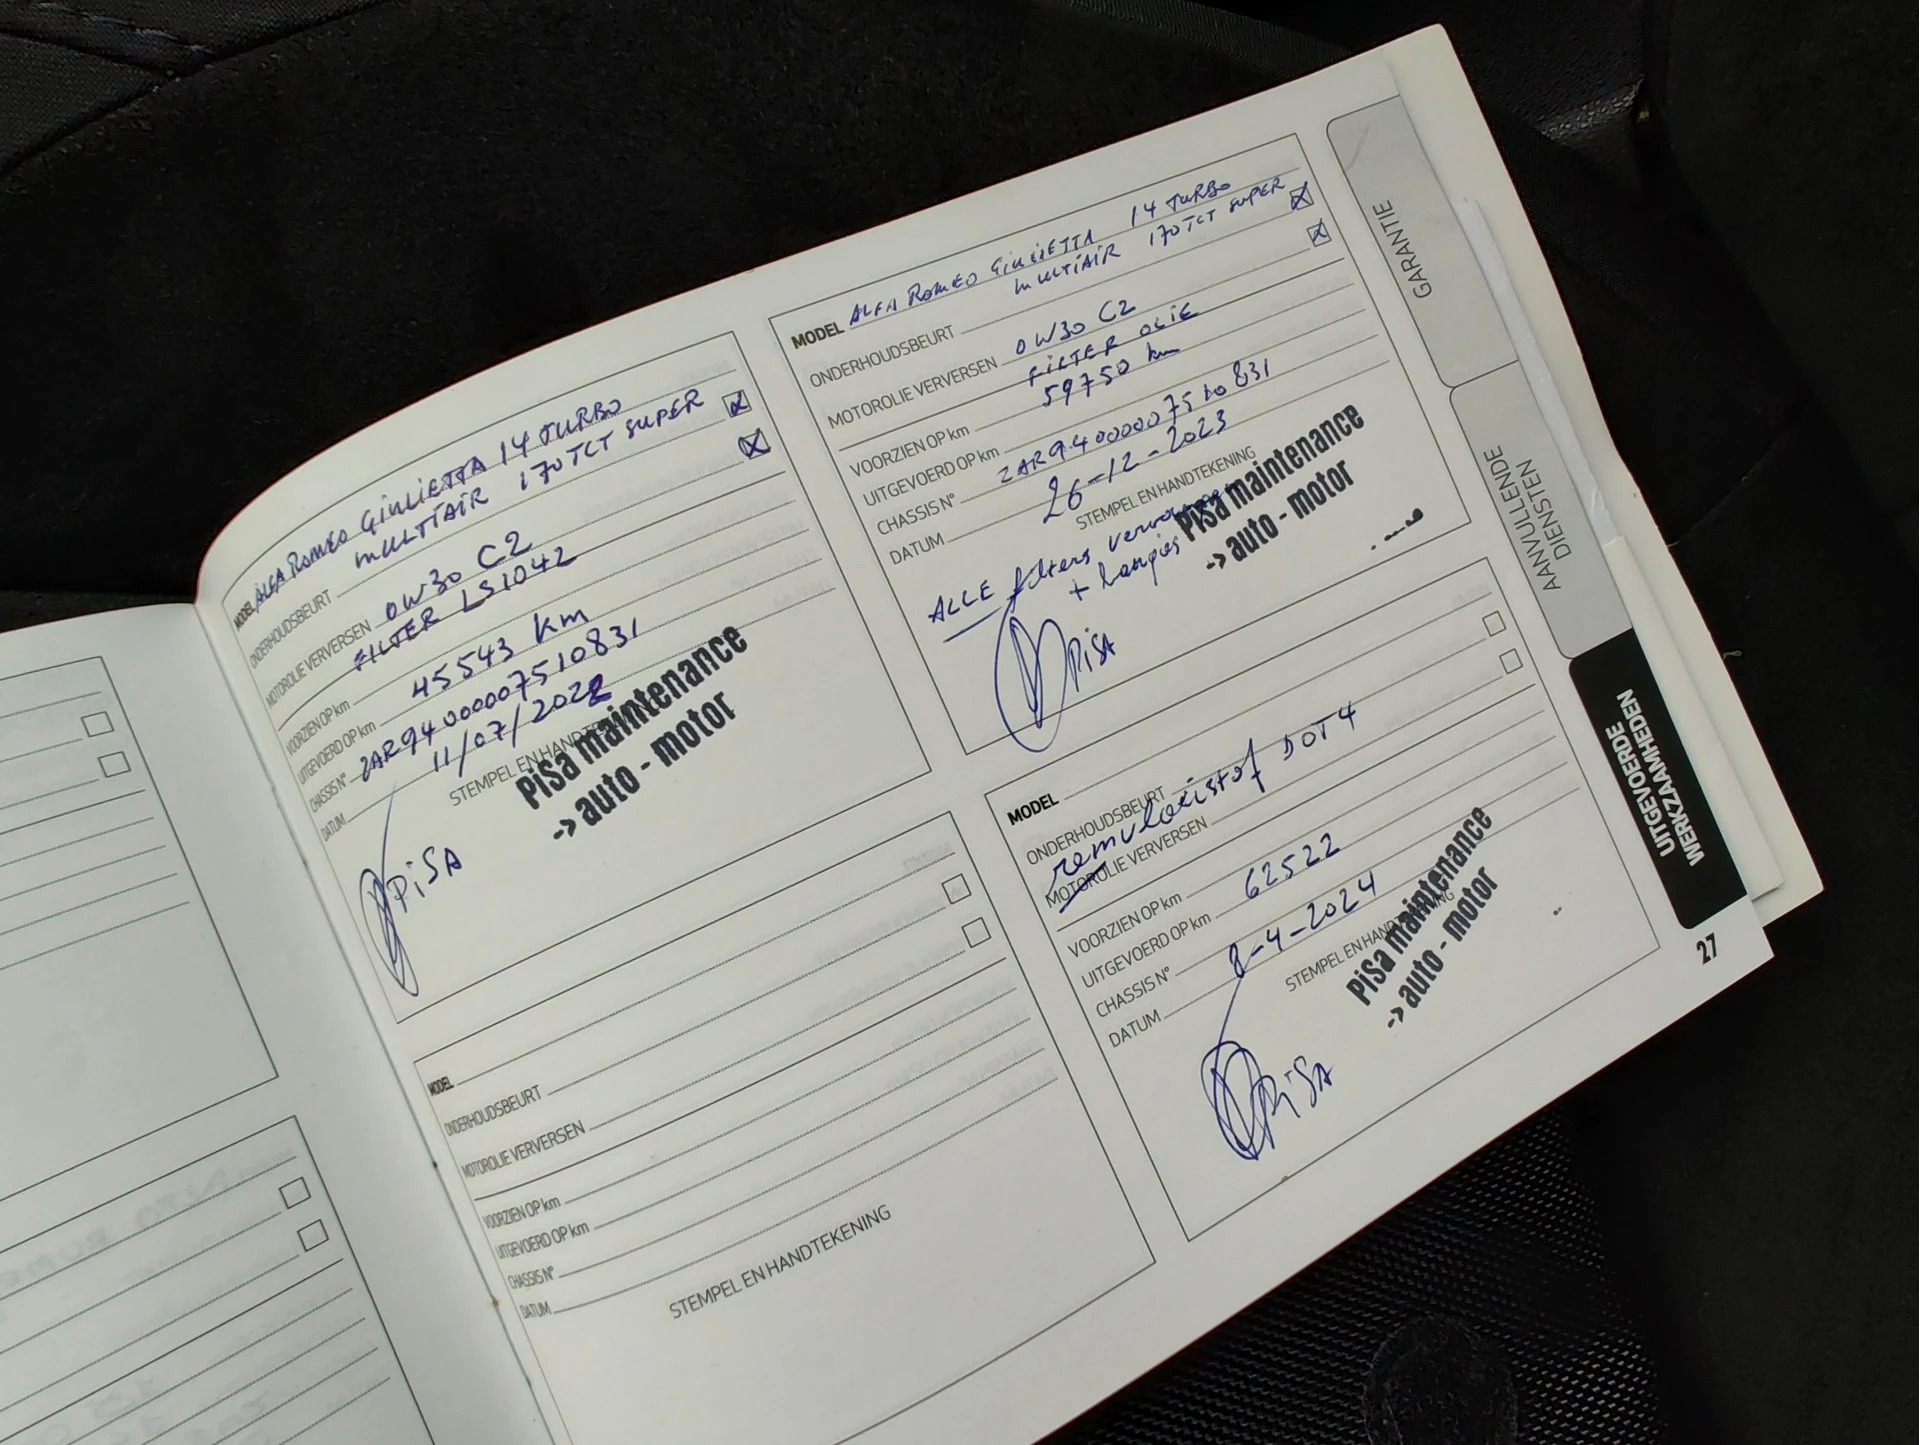 MODEL ALFA ROMEO GIULIETTA 14 TURBO
MULTIAIR 170 TCT SUPER
ONDERHOUDSBEURT
MOTOROLIE VERVERSEN 0W30 C2
FILTER LS1042
VOORZIEN OP km
UITGEVOERD OP km 45543 km
CHASSIS N° ZAR94000007510831
DATUM 11/07/2022
STEMPEL EN HANDTEKENING
PiSa maintenance
-> auto - motor
PiSA
MODEL
ONDERHOUDSBEURT
MOTOROLIE VERVERSEN
VOORZIEN OP km
UITGEVOERD OP km
CHASSIS N°
DATUM
STEMPEL EN HANDTEKENING
MODEL ALFA ROMEO GIULIETTA 14 TURBO
MULTIAIR 170 TCT SUPER
ONDERHOUDSBEURT
MOTOROLIE VERVERSEN 0W30 C2
FILTER OLIE
VOORZIEN OP km 59750 km
UITGEVOERD OP km
CHASSIS N° ZAR94000007510831
DATUM 26-12-2023
STEMPEL EN HANDTEKENING
PiSa maintenance
-> auto - motor
ALLE filters
+
PiSA
MODEL
ONDERHOUDSBEURT
remvloeistof DOT4
MOTOROLIE VERVERSEN
VOORZIEN OP km
UITGEVOERD OP km 62522
CHASSIS N°
DATUM 8-4-2024
STEMPEL EN HANDTEKENING
PiSa maintenance
-> auto - motor
PiSA
GARANTIE
AANVULLENDE
DIENSTEN
UITGEVOERDE
WERKZAAMHEDEN
27